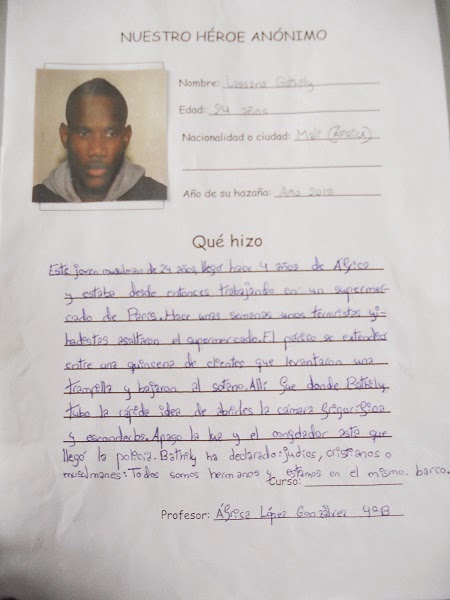 NUESTRO HÉROE ANÓNIMO
Nombre: Lassana Bathily
Edad: 24 años
Nacionalidad o ciudad: Mali (África)
Año de su hazaña: Año 2015
Qué hizo
Este joven musulman de 24 años, llegó hace 4 años de África
y estaba desde entonces trabajando en un supermer-
cado de París. Hace unas semanas unos terroristas yi-
hadistas asaltaron el supermercado. El pánico se extendio
entre una quincena de clientes que levantaron una
trampilla y bajaron al sótano. Allí fue donde Bathily
tubo la rápida idea de abrirles la cámara frigorífica
y esconderlos. Apago la luz y el congelador asta que
llegó la policía. Bathily ha declarado: judios, cristianos o
muselmanes: Todos somos hermanos y estamos en el mismo barco.
Curso:
Profesor: África López González 4ºB